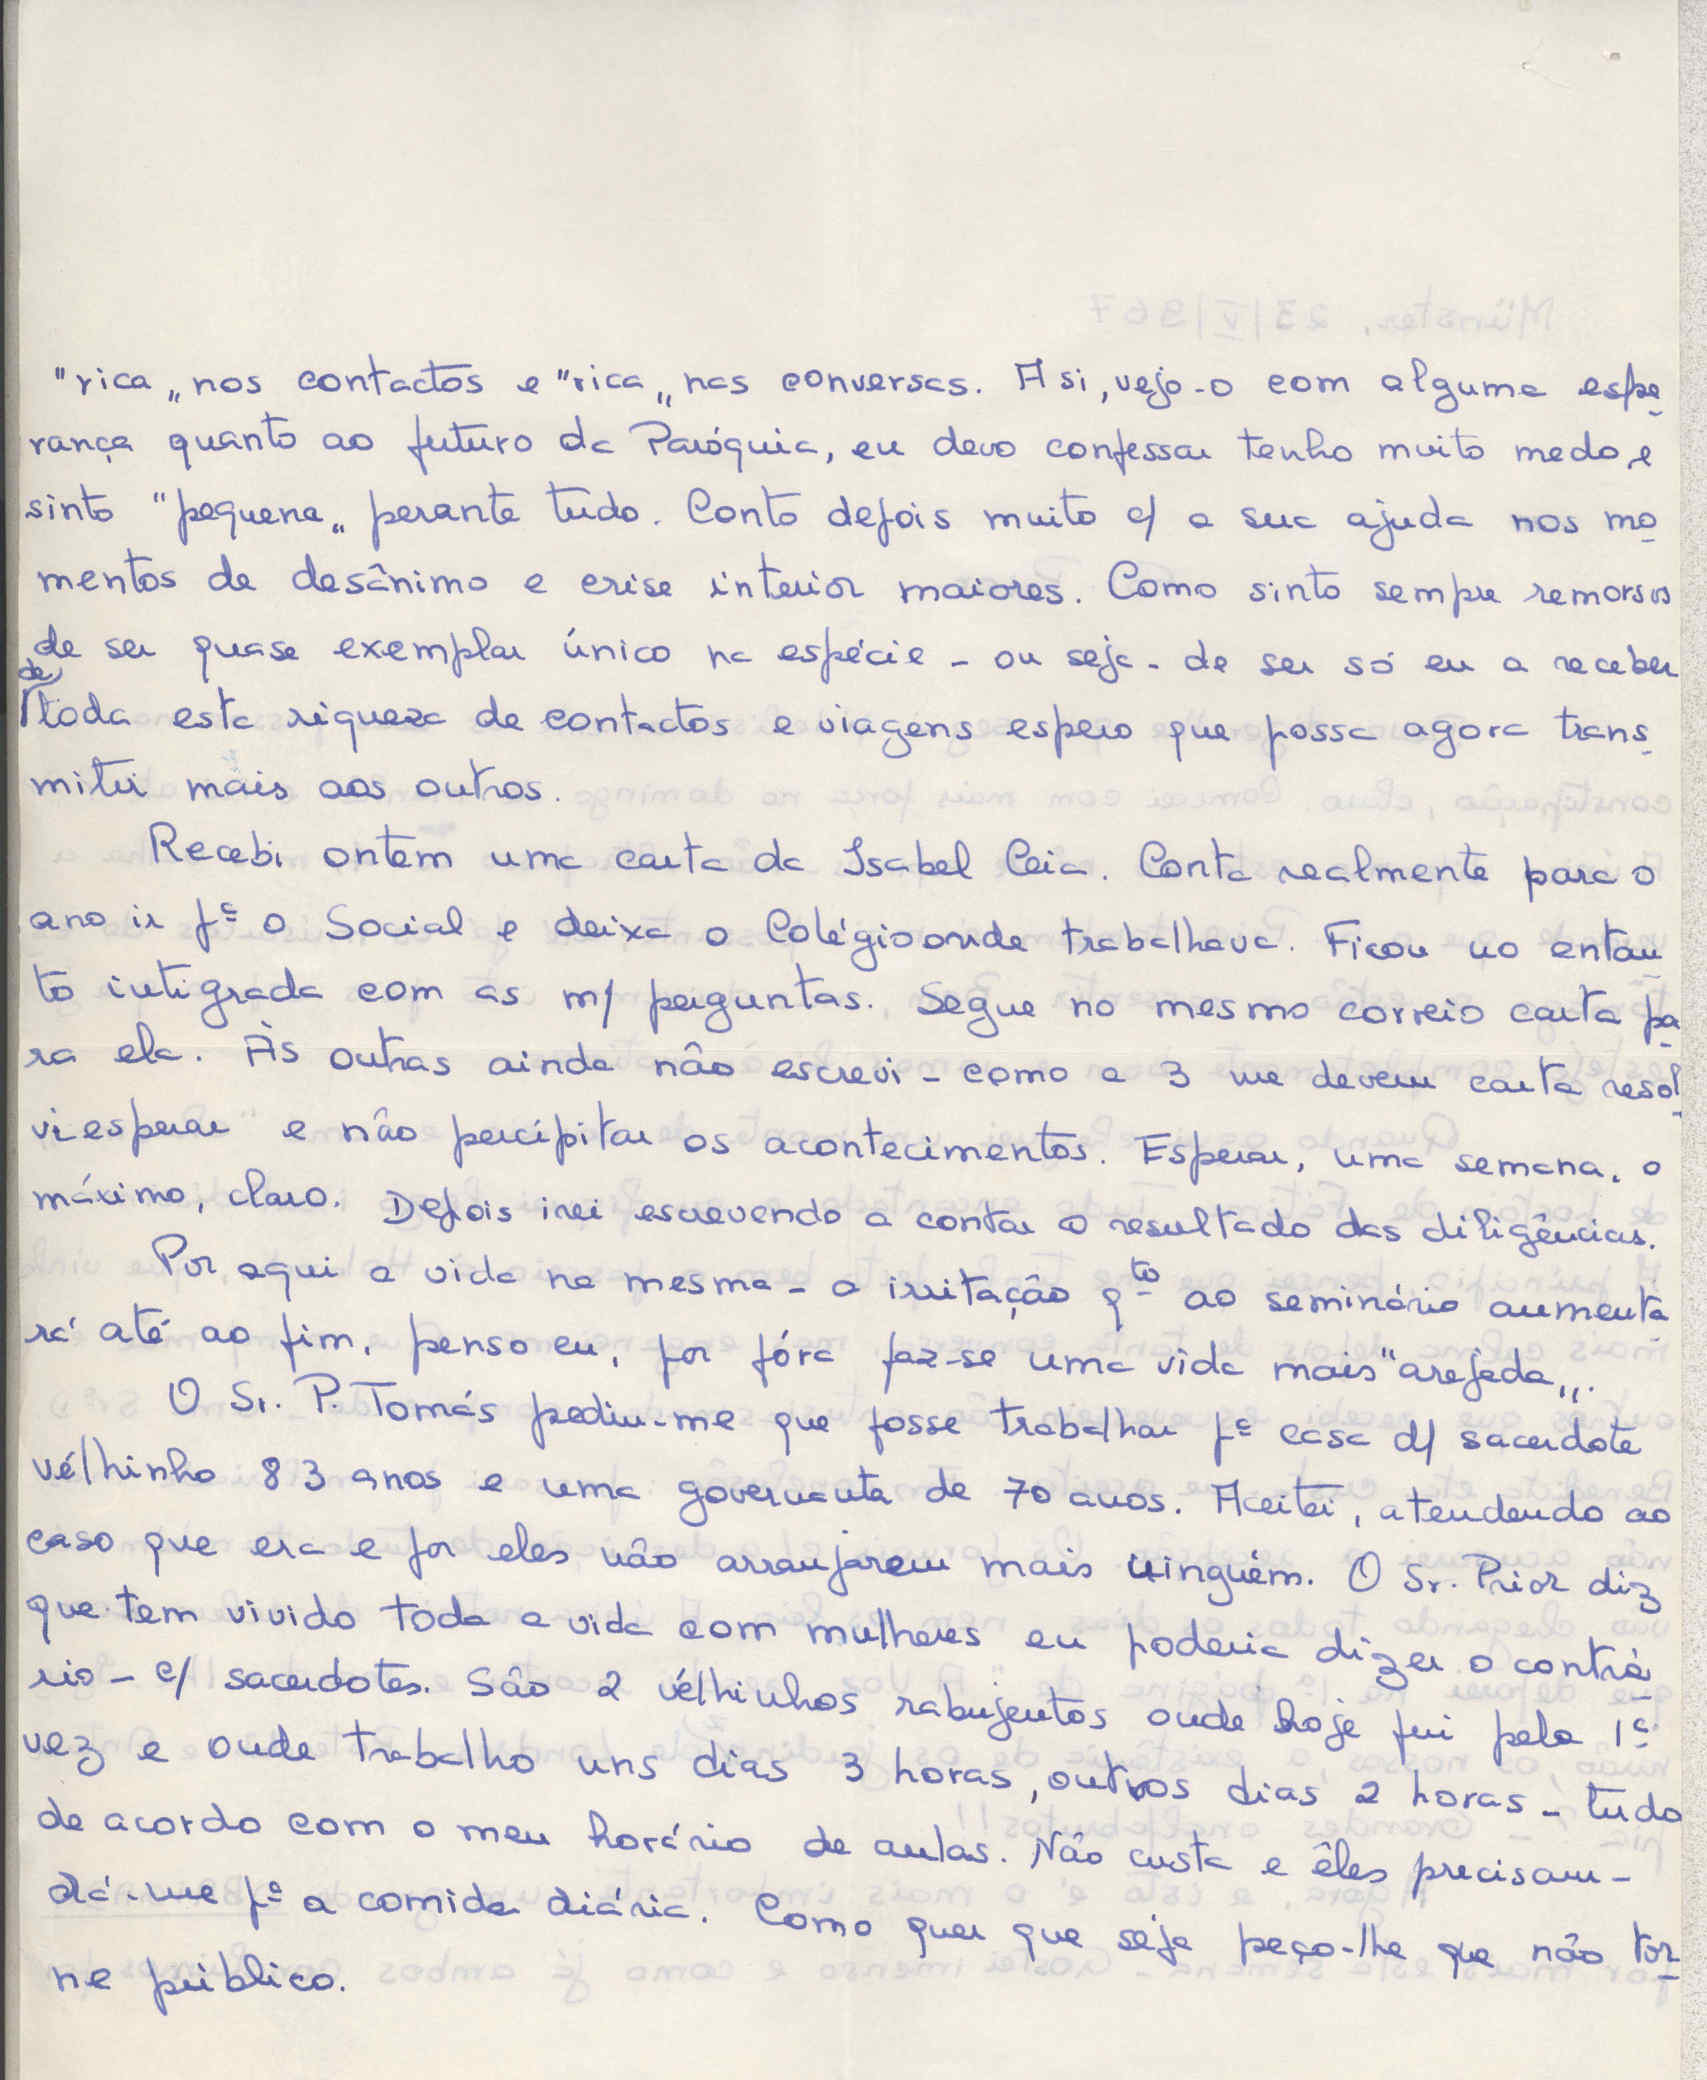 "rica„ nos contactos e "rica„ nas conversas. A si, vejo-o com alguma espe-
rança quanto ao futuro da Paróquia, eu devo confessar tenho muito medo e
sinto "pequena„ perante tudo. Conto depois muito c/ a sua ajuda nos mo-
mentos de desânimo e crise interior maiores. Como sinto sempre remorsos
de ser quase exemplar único na espécie - ou seja - de ser só eu a receber
de toda esta riqueza de contactos e viagens espero que possa agora trans-
mitir mais aos outros.
Recebi ontem uma carta da Isabel Ceia. Conta realmente para o
ano ir pª o Social e deixa o Colégio onde trabalhava. Ficou no entan-
to intigrada com as m/ perguntas. Segue no mesmo correio carta pa-
ra ela. Às outras ainda não escrevi - como a 3 me devem carta resol-
vi esperar" e não percípitar os acontecimentos. Esperar, uma semana, o
máximo, claro. Depois irei escrevendo a contar o resultado das diligências.
Por aqui a vida na mesma - a irritação qto ao seminário aumenta-
rá até ao fim, penso eu, por fóra faz-se uma vida mais "arejada„.
O Sr. P. Tomás pediu-me que fosse trabalhar pª casa d/ sacerdote
vélhinho 83 anos e uma governanta de 70 anos. Aceitei, atendendo ao
caso que era e por eles não arranjarem mais ninguém. O Sr. Prior diz
que tem vivido toda a vida com mulheres eu poderia dizer o contrá-
rio - c/ sacerdotes. São 2 vélhinhos rabujentos onde hoje fui pela 1ª
vez e onde trabalho uns dias 3 horas, outros dias 2 horas - tudo
de acordo com o meu horário de aulas. Não custa e êles precisam -
dá-me pª a comida diária. Como quer que seja peço-lhe que não tor-
ne público.